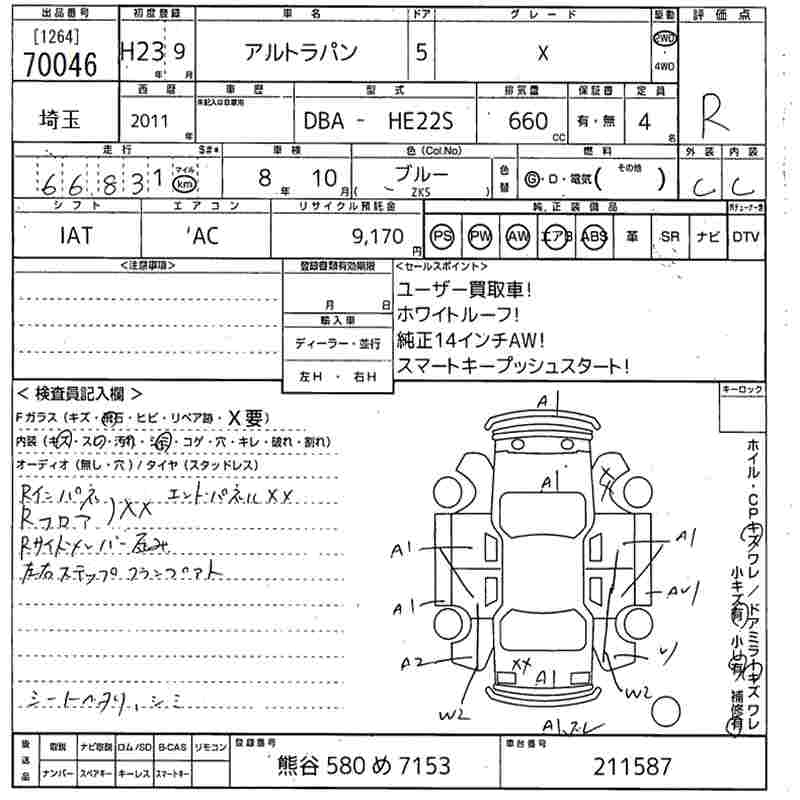 出品番号 初度登録 車名 ドア グレード 駆動 評価点
[1264]
70046 H23年 9月 アルトラパン 5 X 2WD 4WD R
西暦 車歴 型式 排気量 保証書 定員
埼玉 2011年 未記入は自家用 DBA - HE22S 660cc 有・無 4名
走行 S#* 車検 色(Col.No) 燃料 外装 内装
66831 マイル km 8年 10月 ブルー (ZK5) 色替 G・D・電気( その他 ) C C
シフト エアコン リサイクル預託金 純正装備品
IAT 'AC 9,170円 PS PW AW エアB ABS 革 SR ナビ DTV
<注意事項> 登録書類有効期限 <セールスポイント>
月 日 ユーザー買取車!
輸入車 ホワイトルーフ!
ディーラー・並行 純正14インチAW!
左H・右H スマートキープッシュスタート!
<検査員記入欄> キーロック
Fガラス(キズ・飛石・ヒビ・リペア跡・X要)
内装(キズ・スレ・汚れ・シミ・コゲ・穴・キレ・破れ・割れ)
オーディオ(無し・穴)/タイヤ(スタッドレス)
Rインパネ エンドパネルXX
Rフロア)XX
Rサイドメンバー歪み
左右ステップフランジアト
シートヘタリ、シミ
A1
A1
XX
A1 A1
A1 AU1
A2 U1
XX A1
W2 W2
A1、ズレ
ホイル・CPキズワレ/ドアミラーキズワレ
小キズ有 小U有 補修有
後送品 取説 ナビ取説 ロム/SD B-CAS リモコン 登録番号 車台番号
ナンバー スペアキー キーレス スマートキー 熊谷 580 め 7153 211587